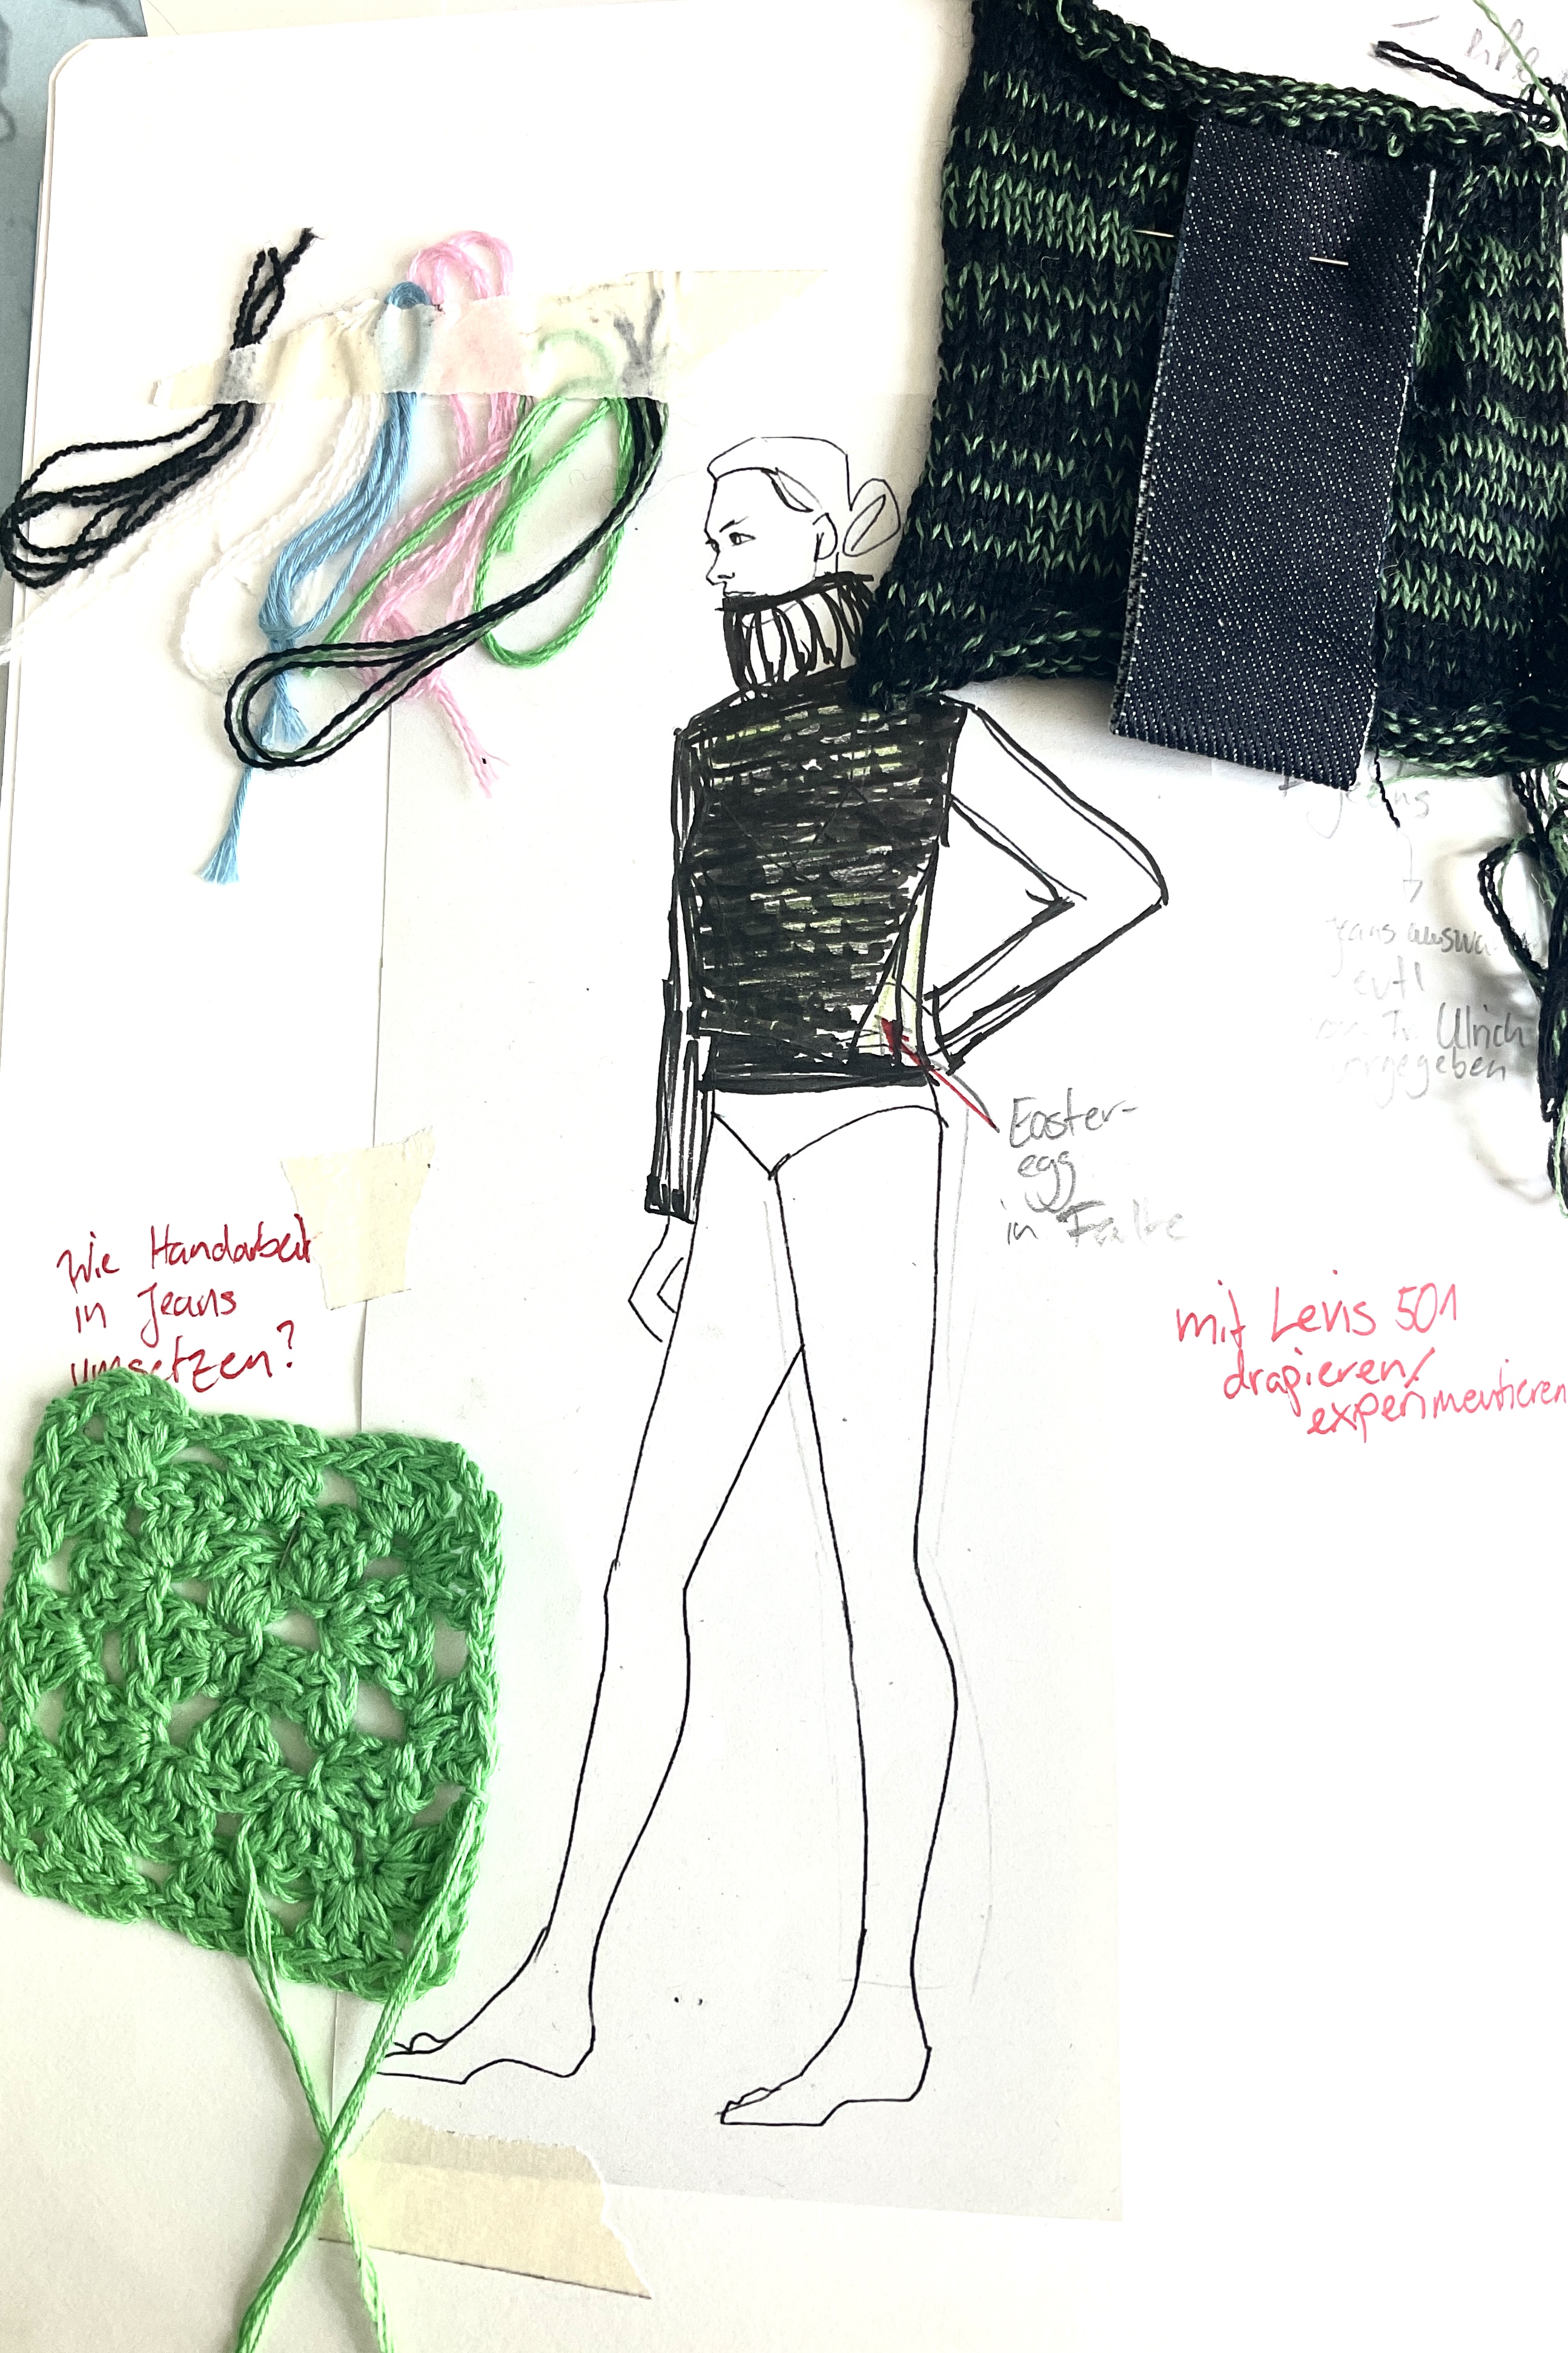 Jeans
jeans
evtl
Ulrich
Easter-
egg
in Falte
Wie Handarbeit
in Jeans
umsetzen?
mit Levis 501
drapieren/
experimentieren